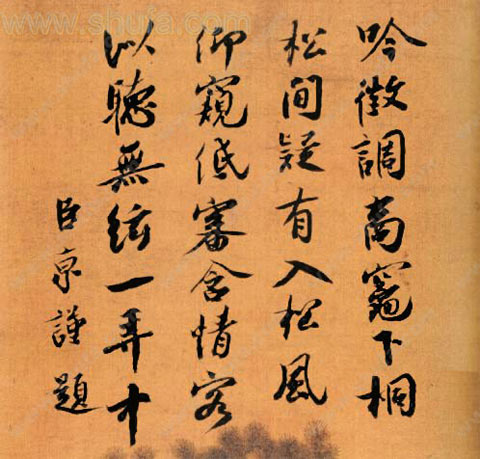 www.shufa.com
吟徵調商竈下桐
松間疑有入松風
仰窺低審含情客
以聽無絃一弄中
臣京謹題